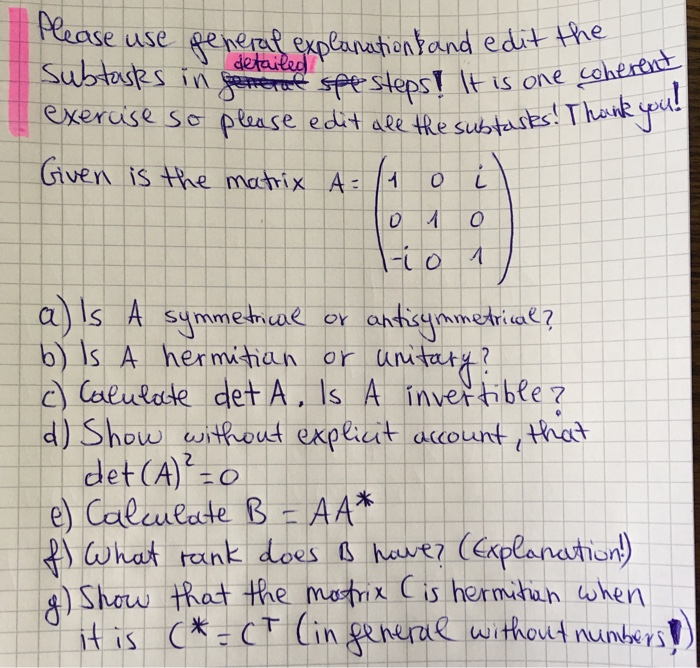 Please use general explanations and edit the
detailed
subtasks in general spe steps! It is one coherent
exercise so please edit all the subtasks! Thank you!
Given is the matrix A = (1 0 i
0 1 0
-i 0 1)
a) Is A symmetrical or antisymmetrical?
b) Is A hermitian or unitary?
c) Calculate det A. Is A invertible?
d) Show without explicit account, that
det(A)² = 0
e) Calculate B = AA*
f) What rank does B have? (Explanation!)
g) Show that the matrix C is hermitian when
it is C* = C^T (in general without numbers!)